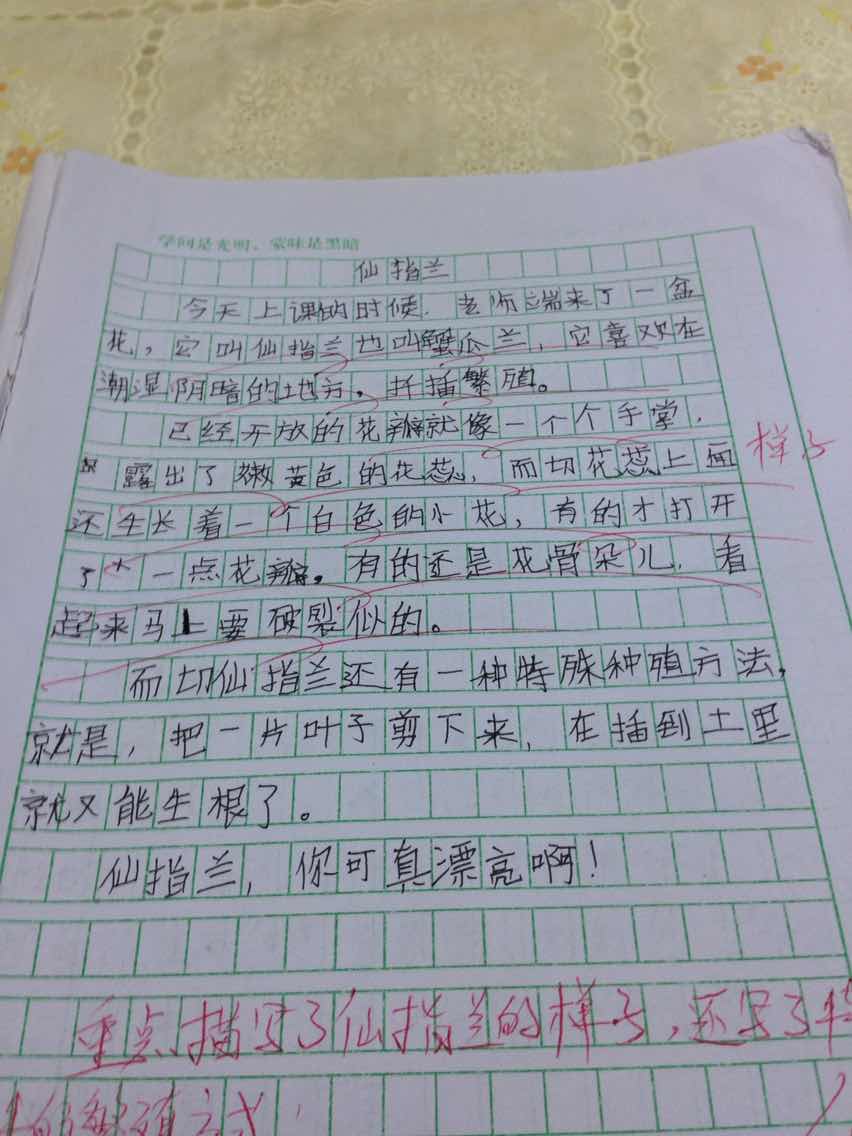 学问是光明，蒙昧是黑暗
仙指兰
今天上课的时候，老师端来了一盆
花，它叫仙指兰也叫蟹瓜兰，它喜欢在
潮湿阴暗的地方。扦插繁殖。
已经开放的花瓣就像一个个手掌，
露出了嫩黄色的花蕊，而切花蕊上面
样子
还生长着一个白色的小花，有的才打开
了一点花瓣。有的还是花骨朵儿，看
起来马上要破裂似的。
而切仙指兰还有一种特殊种殖方法，
就是，把一片叶子剪下来，在插到土里
就又能生根了。
仙指兰，你可真漂亮啊！
重点描写了仙指兰的样子，还写了
的繁殖方式